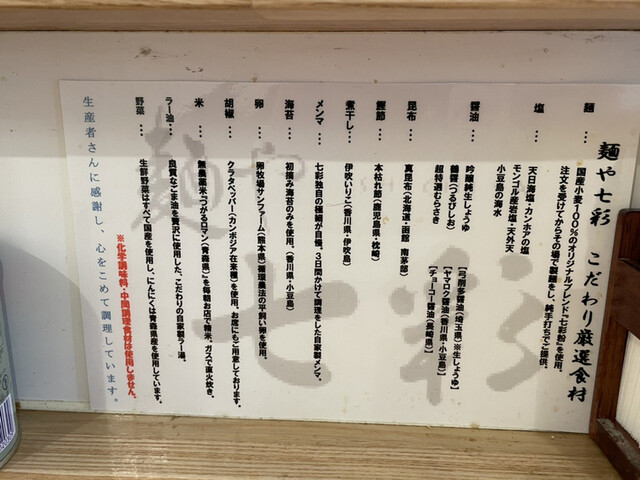 麺や七彩 こだわり厳選食材
麺… 国産小麦100%のオリジナルブレンド『七彩粉』を使用。
注文を受けてからその場で製麺をし、純手打ちでご提供。
塩… 天日海塩・カンホアの塩
モンゴル産岩塩・天外天
小豆島の海水
醤油… 吟醸純生しょうゆ [弓削多醤油(埼玉県)※生しょうゆ]
鶴醤(つるびしお) [ヤマロク醤油(香川県・小豆島)]
超特選むらさき [チョーコー醤油(長崎県)]
昆布… 真昆布(北海道・函館 南茅部)
鰹節… 本枯れ節(鹿児島県・枕崎)
煮干し… 伊吹いりこ(香川県・伊吹島)
メンマ… 七彩独自の極細が自慢。3日間かけて調理をした自家製メンマ。
海苔… 初摘み海苔のみを使用。(香川県・小豆島)
卵… 卵牧場サンファーム(熊本県)循環農法の平飼い卵を使用。
胡椒… クラタペッパー(カンボジア在来種)を使用。お席にもご用意しております。
米… 無農薬米・つがるロマン(青森県)』を毎朝お店で精米。ガスで直火炊き。
ラー油… 良質なごま油を贅沢に使用した、こだわりの自家製ラー油。
野菜… 生鮮野菜はすべて国産を使用し、にんにくは青森県産を使用しています。
※化学調味料・中間調理食材は使用しません。
生産者さんに感謝し、心をこめて調理しています。
麺や
七彩